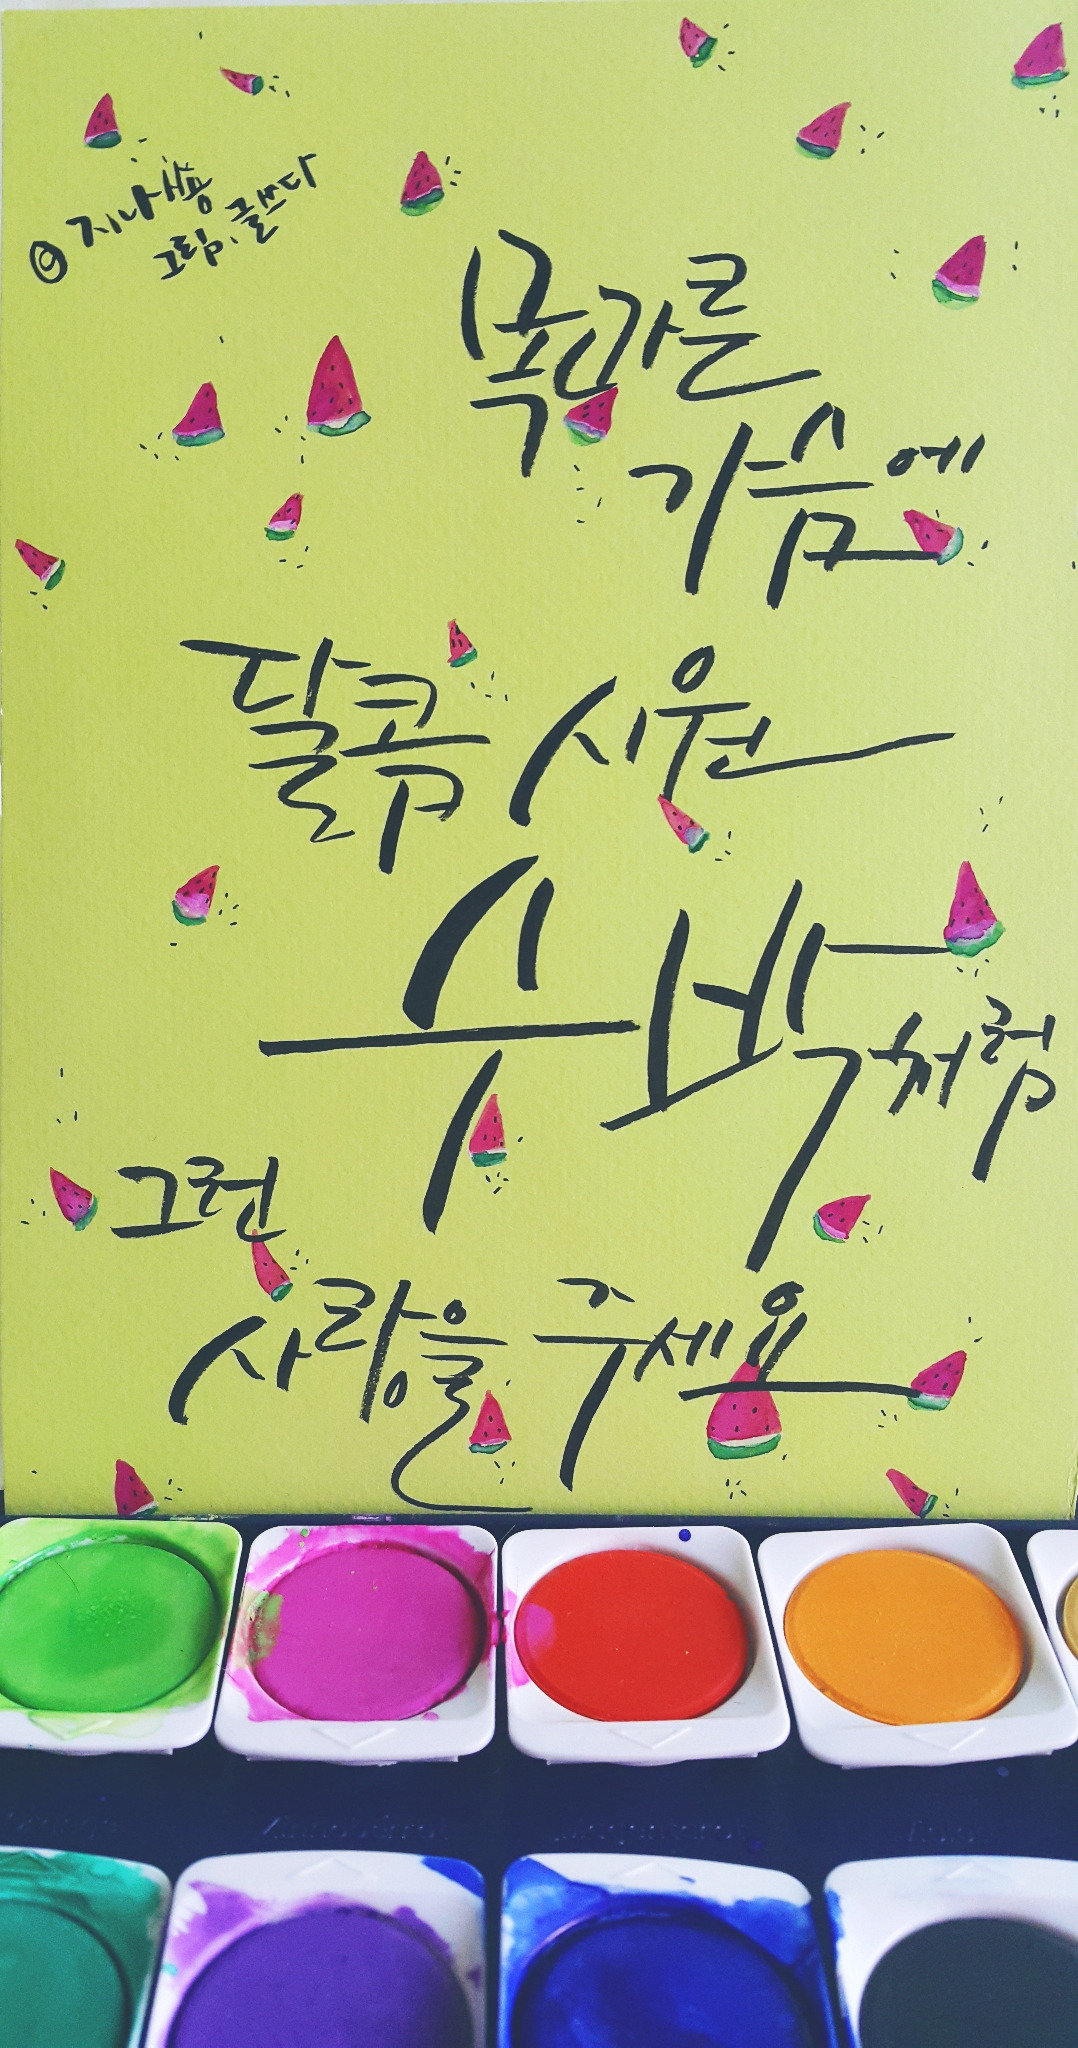 그림.글쓰다
목마른
가슴에
달콤 시원
수박처럼
그런
사랑을 주세요